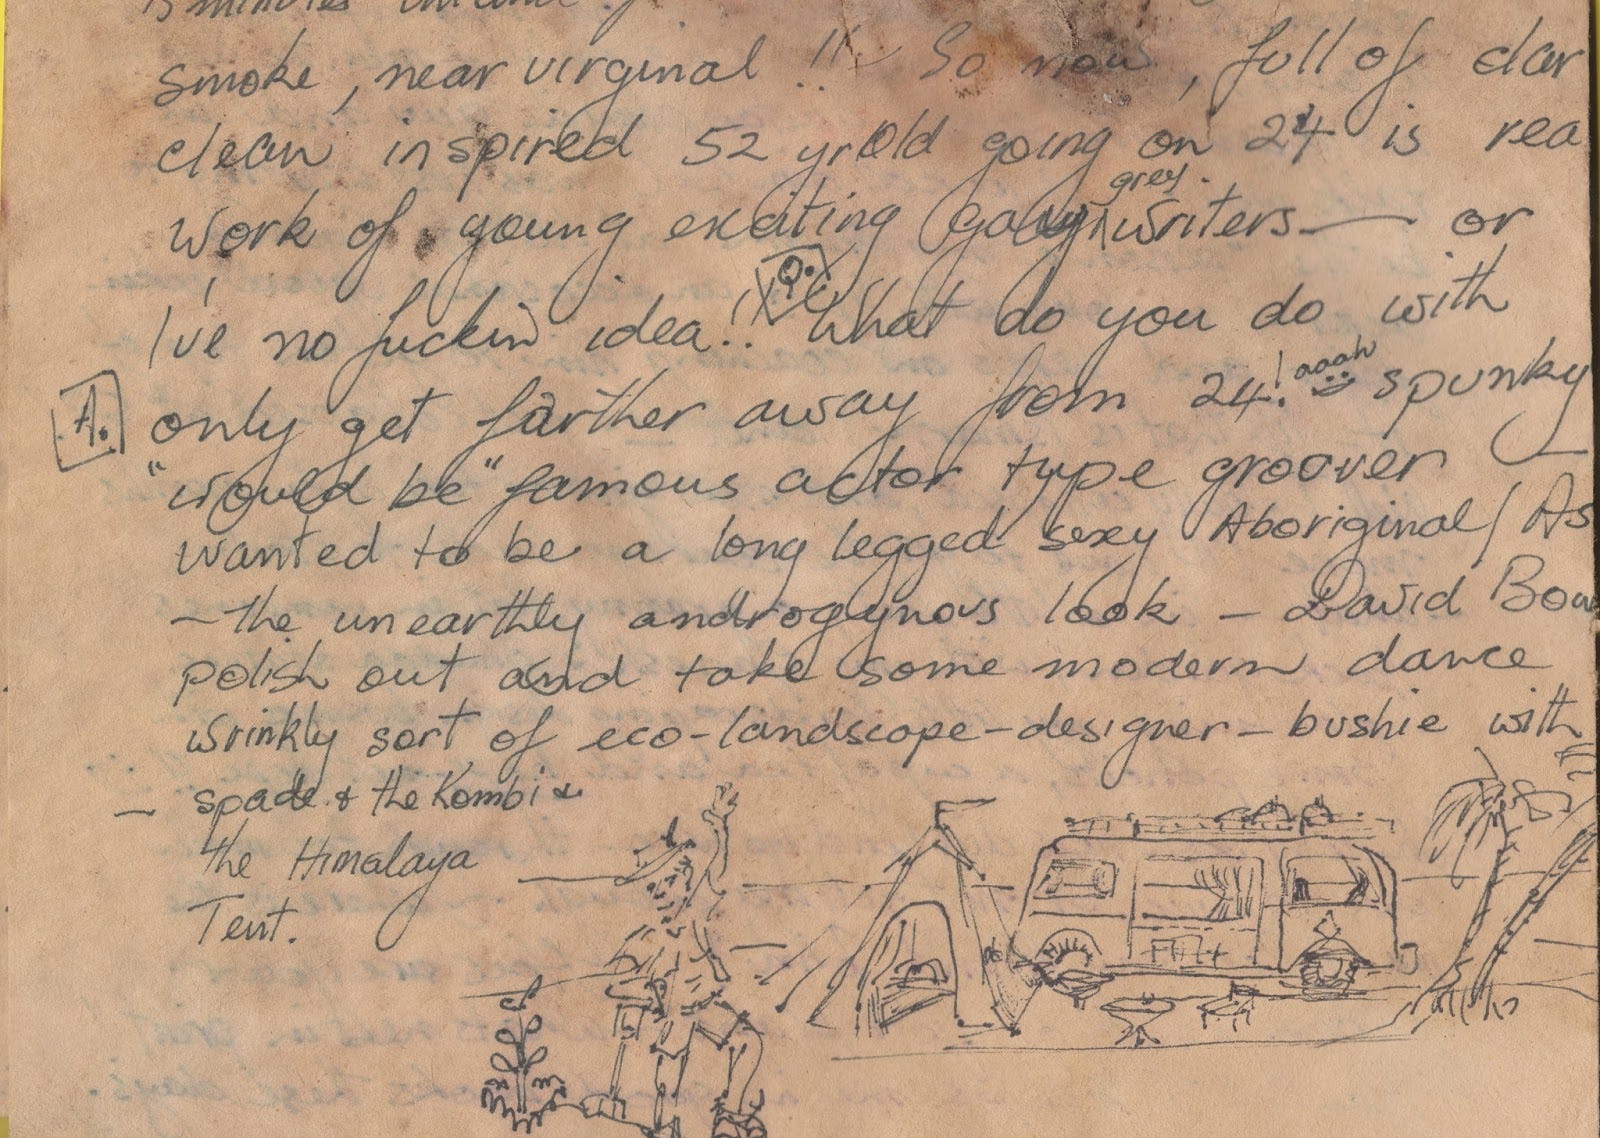 smoke, near virginal !! So now, full of
clean inspired 52 yr old going on 24 is rea
grey.
work of young exciting writers — or
I've no fuckin idea!! Q. What do you do with
A. only get farther away from 24! aaah spunky
"would be" famous actor type groover
wanted to be a long legged sexy Aboriginal / As
- the unearthly androgynous look - David Bow
polish out and take some modern dance
wrinkly sort of eco-landscape-designer-bushie with
- spade & the Kombi &
the Himalaya
Tent.